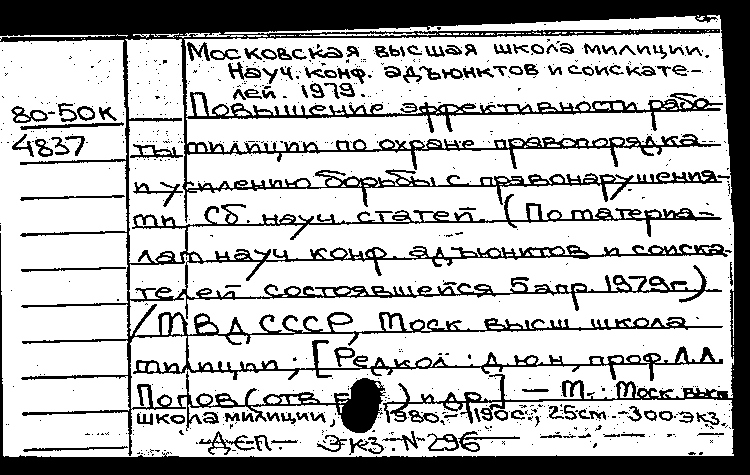 Московская высшая школа милиции.
Науч. конф. адъюнктов и соискате-
лей. 1979.
80-50К
Повышение эффективности рабо-
4837
ты милиции по охране правопорядка
и усилению борьбы с правонарушения-
ми Сб. науч. статей. (По материа-
лам науч. конф. адъюнктов и соиска-
телей состоявшейся 5 апр. 1979г.)
/МВД СССР, Моск. высш. школа
милиции; [Редкол.: д.ю.н, проф. Л.Л.
Попов (отв ) и др.] — М.: Моск. высш
школа милиции, 1980. - 190с.; 25см. - 300 экз.
ДСП. Экз. № 296